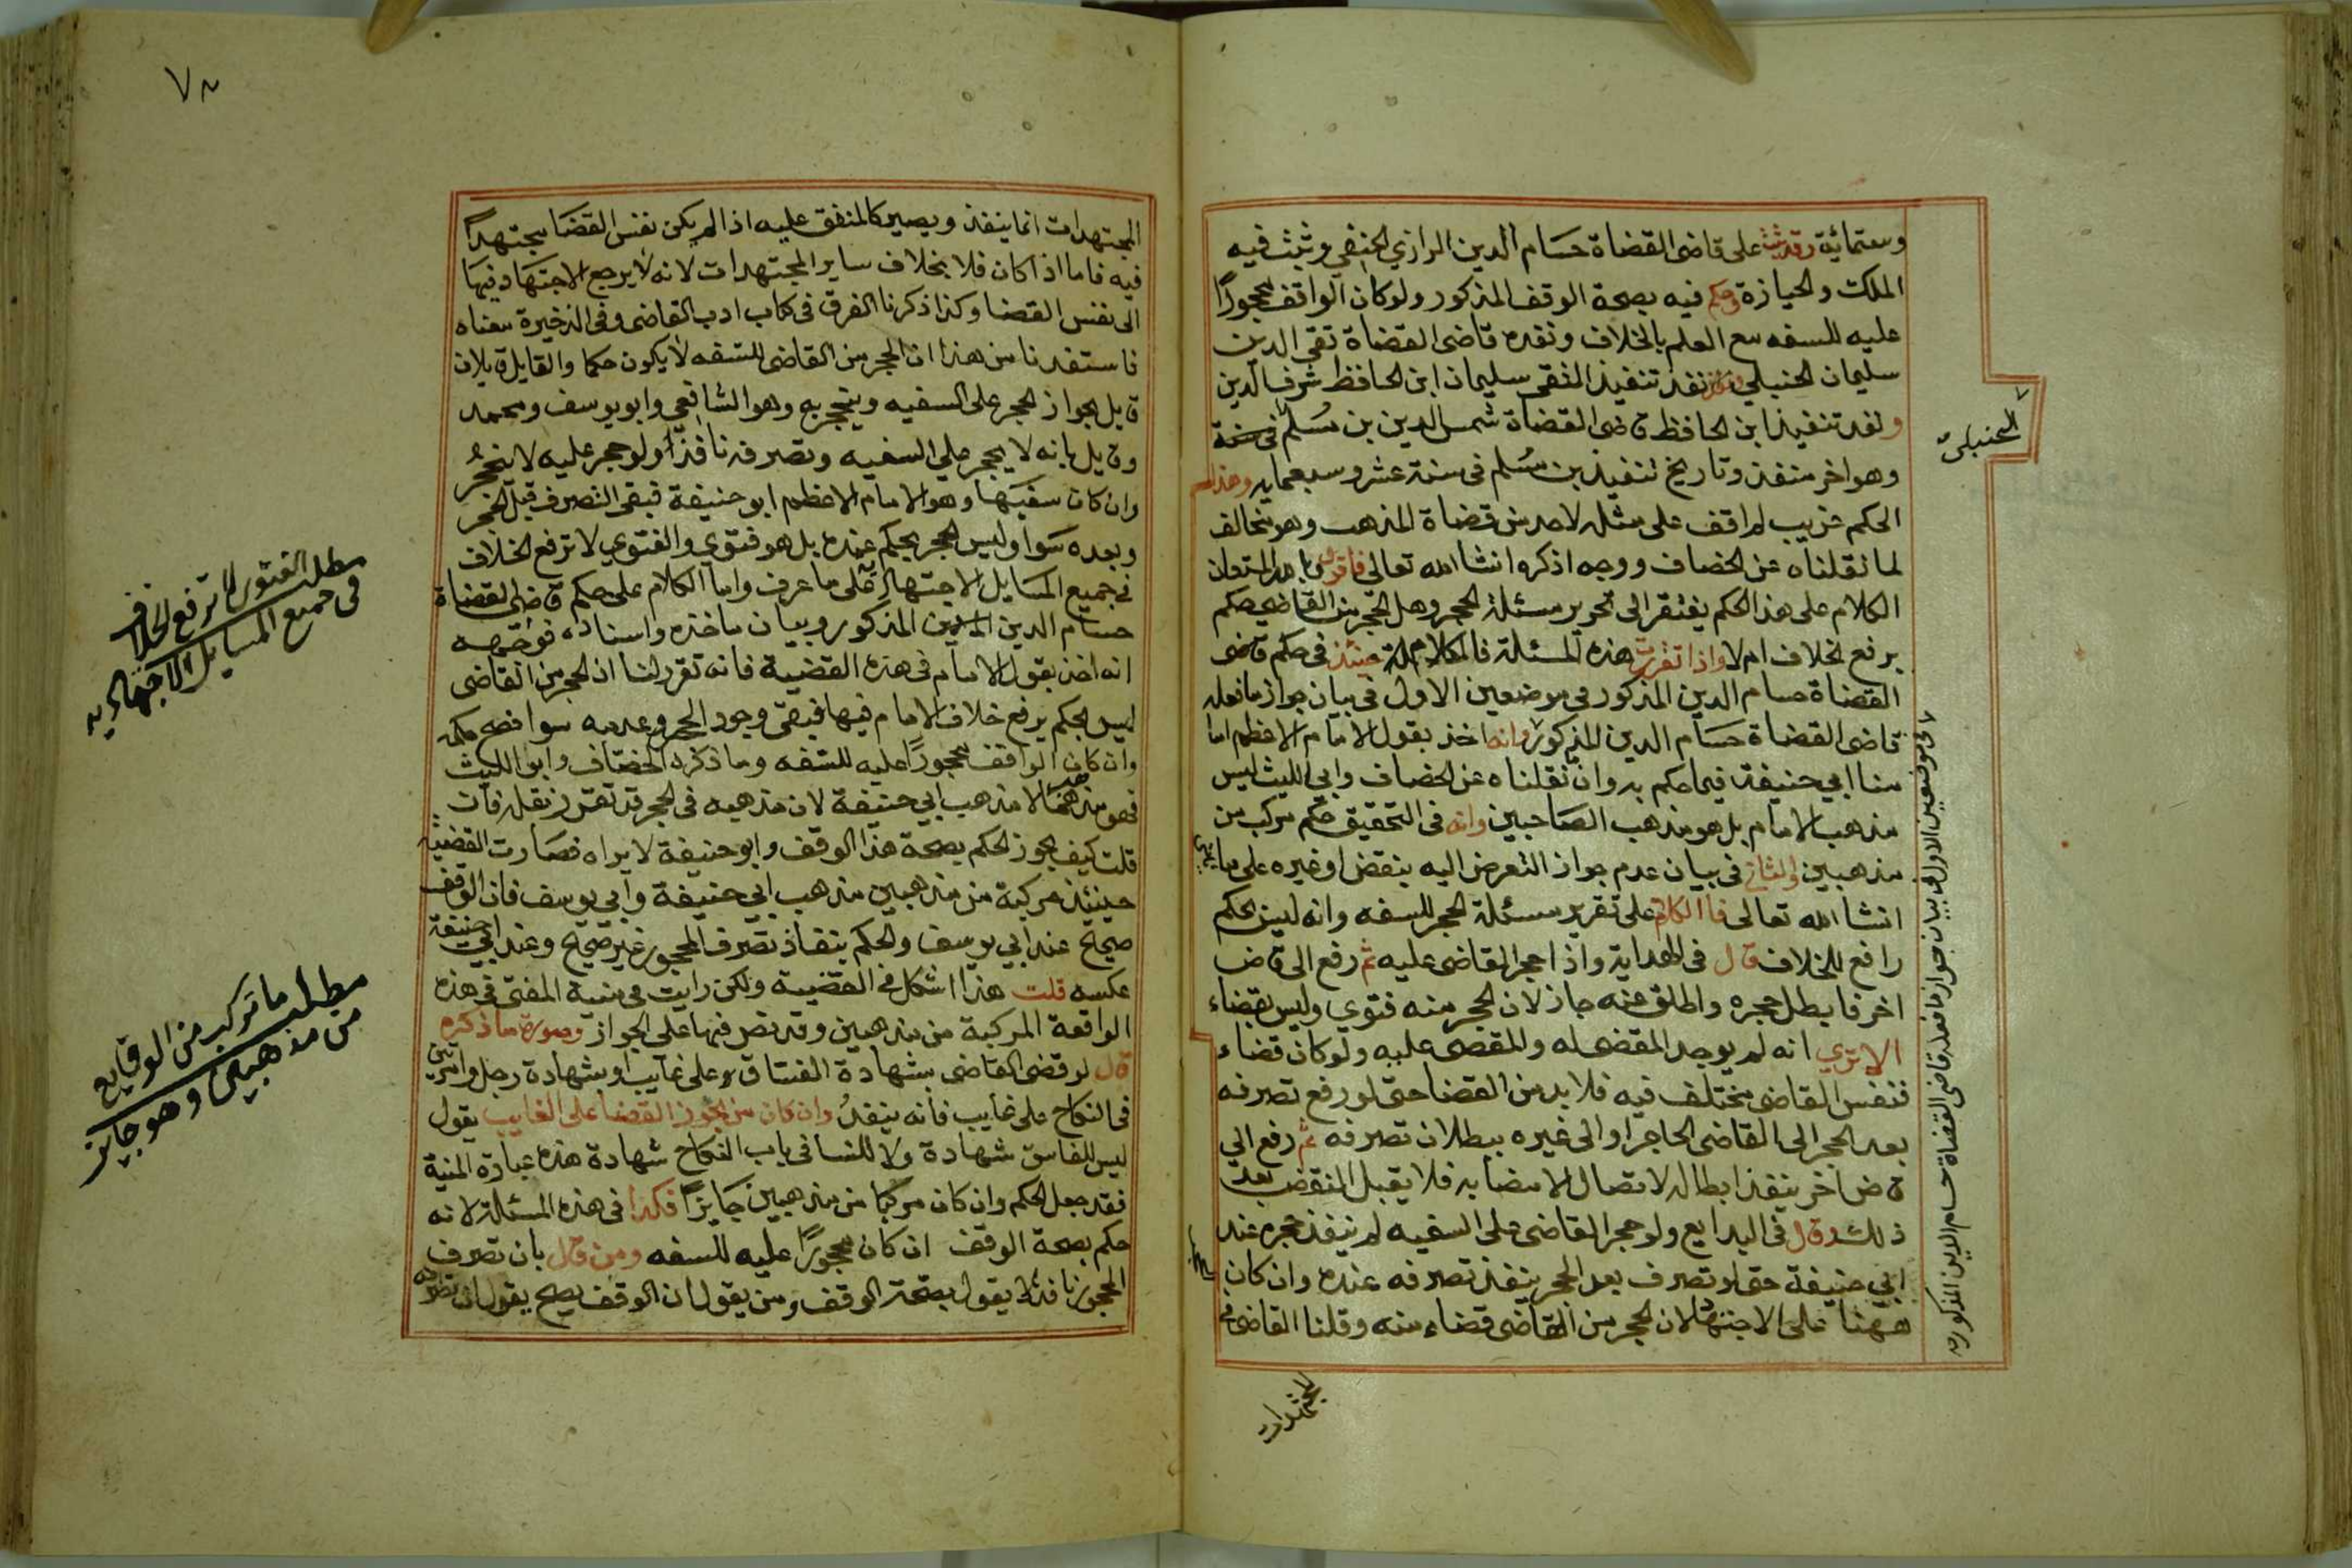 وستمائة وقد ثبت على قاضى القضاة حسام الدين الرازي الحنفي وثبت فيه
الملك والحيازة وحكم فيه بصحة الوقف المذكور ولو كان الواقف محجورًا
عليه للسفه مع العلم بالخلاف ونفذه قاضى القضاة تقي الدين
سليمان الحنبلي نفذ تنفيذ التقى سليمان ابن الحافظ شرف الدين
ونفذ تنفيذ ابن الحافظ قاضى القضاة شمس الدين بن مسلم في سنة
الحنبلى
وهو اخر منفذ وتاريخ تنفيذ بن مسلم فى سنة عشر وسبعمايه وهذا
الحكم غريب لم اقف على مثله لاحد من قضاة المذهب وهو مخالف
لما نقلناه عن الخصاف ووجه اذكره انشا الله تعالى فاقول وبالله المستعان
الكلام على هذا الحكم يفتقر الى تحرير مسئلة الحجر وهل الحجر من القاضي حكم
يرفع الخلاف ام لا واذا تقررت هذه المسئلة فالكلام حينئذ فى حكم قاضى
القضاة حسام الدين المذكور في موضعين الاول فى بيان جواز ما فعله
قاضى القضاة حسام الدين المذكور وانه اخذ بقول الامام الاعظم امامنا
ابي حنيفة فيما حكم به وان ما نقلناه عن الخصاف وابي الليث ليس
مذهب الامام بل هو مذهب الصاحبين وانه فى التحقيق حكم مركب من
مذهبين والثانى فى بيان عدم جواز التعرض اليه بنقض او غيره على ما يأتي
انشا الله تعالى فاالكلام على تقرير مسئلة الحجر للسفه وانه ليس بحكم
رافع للخلاف قال فى الهداية واذا حجر القاضى عليه ثم رفع الى قاض
اخر فابطل حجره واطلق عنه جاز لان الحجر منه فتوى وليس بقضاء
الا ترى انه لم يوجد المقضى له والمقضى عليه ولو كان قضاء
فنفس القاضى مختلف فيه فلا بد من القضا حتى لو رفع تصرفه
بعد الحجر الى القاضى الحاجر او الى غيره ببطلان تصرفه ثم رفع الى
قاض اخر ينفذ ابطاله لاتصال الامضا به فلا يقبل النقض بعد
ذلك وقال فى البدايع ولو حجر القاضى على السفيه لم ينفذ حجره عند
ابي حنيفة حتى لو تصرف بعد الحجر ينفذ تصرفه عنده وان كان
ههنا على الاجتهاد لان الحجر من القاضى قضاء منه وقلنا القاضى فى
فى موضعين الاول فى بيان جواز ما فعله قاضى القضاة حسام الدين المذكور
المجتهدات
٧٨
المجتهدات انما ينفذ ويصير كالمتفق عليه اذا لم يكن نفس القضا مجتهدًا
فيه فاما اذا كان فلا بخلاف ساير المجتهدات لانه لا يرجع الاجتهاد فيها
الى نفس القضا وكذا ذكرنا الفرق فى كتاب ادب القاضى وفى الذخيرة معناه
فاستفدنا من هذا ان الحجر من القاضى للسفه لا يكون حكما والقايل قايلان
قايل بجواز الحجر على السفيه وينحجر به وهو الشافعي وابو يوسف ومحمد
وقايل بانه لا يحجر على السفيه وتصرفه نافذًا ولو حجر عليه لا ينحجرُ
وان كان سفيها وهو الامام الاعظم ابو حنيفة فبقى التصرف قبل الحجر
وبعده سوا وليس الحجر بحكم عنده بل هو فتوى والفتوى لا ترفع الخلاف
فى جميع المسايل الاجتهادية على ما عرف واما الكلام على حكم قاضى القضاة
حسام الدين المذكور وبيان ماخذه واسناده فوجهه
انه اخذ بقول الامام فى هذه القضية فانه تقرر لنا ان الحجر من القاضى
ليس بحكم يرفع خلاف الامام فيها فبقى وجود الحجر وعدمه سوا فصح حكمه
وان كان الواقف محجورًا عليه للسفه وما ذكره الخصاف وابو الليث
فهو مذهبهما لا مذهب ابي حنيفة لان مذهبه فى الحجر قد تقرر نقله فان
قلت كيف يجوز الحكم بصحة هذا الوقف وابو حنيفة لا يراه فصارت القضية
حينئذ مركبة من مذهبين مذهب ابي حنيفة وابي يوسف فان الوقف
صحيح عند ابي يوسف والحكم بنفاذ تصرف المحجور غير صحيح وعند ابي حنيفة
عكسه قلت هذا اشكل فى القضية ولكن رايت فى منية المفتى فى هذه
الواقعة المركبة من مذهبين وقد نص فيها على الجواز وصورة ما ذكره
قال لو قضى القاضى بشهادة الفساق وعلى غايب او بشهادة رجل وامرأتين
فى النكاح على غايب فانه ينفذُ وان كان من يجوز القضا على الغايب يقول
ليس للفاسق شهادة ولا للنسا فى باب النكاح شهادة هذه عبارة المنية
فقد جعل الحكم وان كان مركبا من مذهبين جايزًا فكذا فى هذه المسئلة لانه
حكم بصحة الوقف ان كان محجورًا عليه للسفه ومن قال بان تصرف
المحجور نافذ لا يقول بصحة الوقف ومن يقول ان الوقف يصح يقول ان تصرفه
مطلب الفتوى لا ترفع الخلاف
فى جميع المسايل الاجتهاديه
مطلب ما تركب من الوقايع
من مذهبين وهو جايز